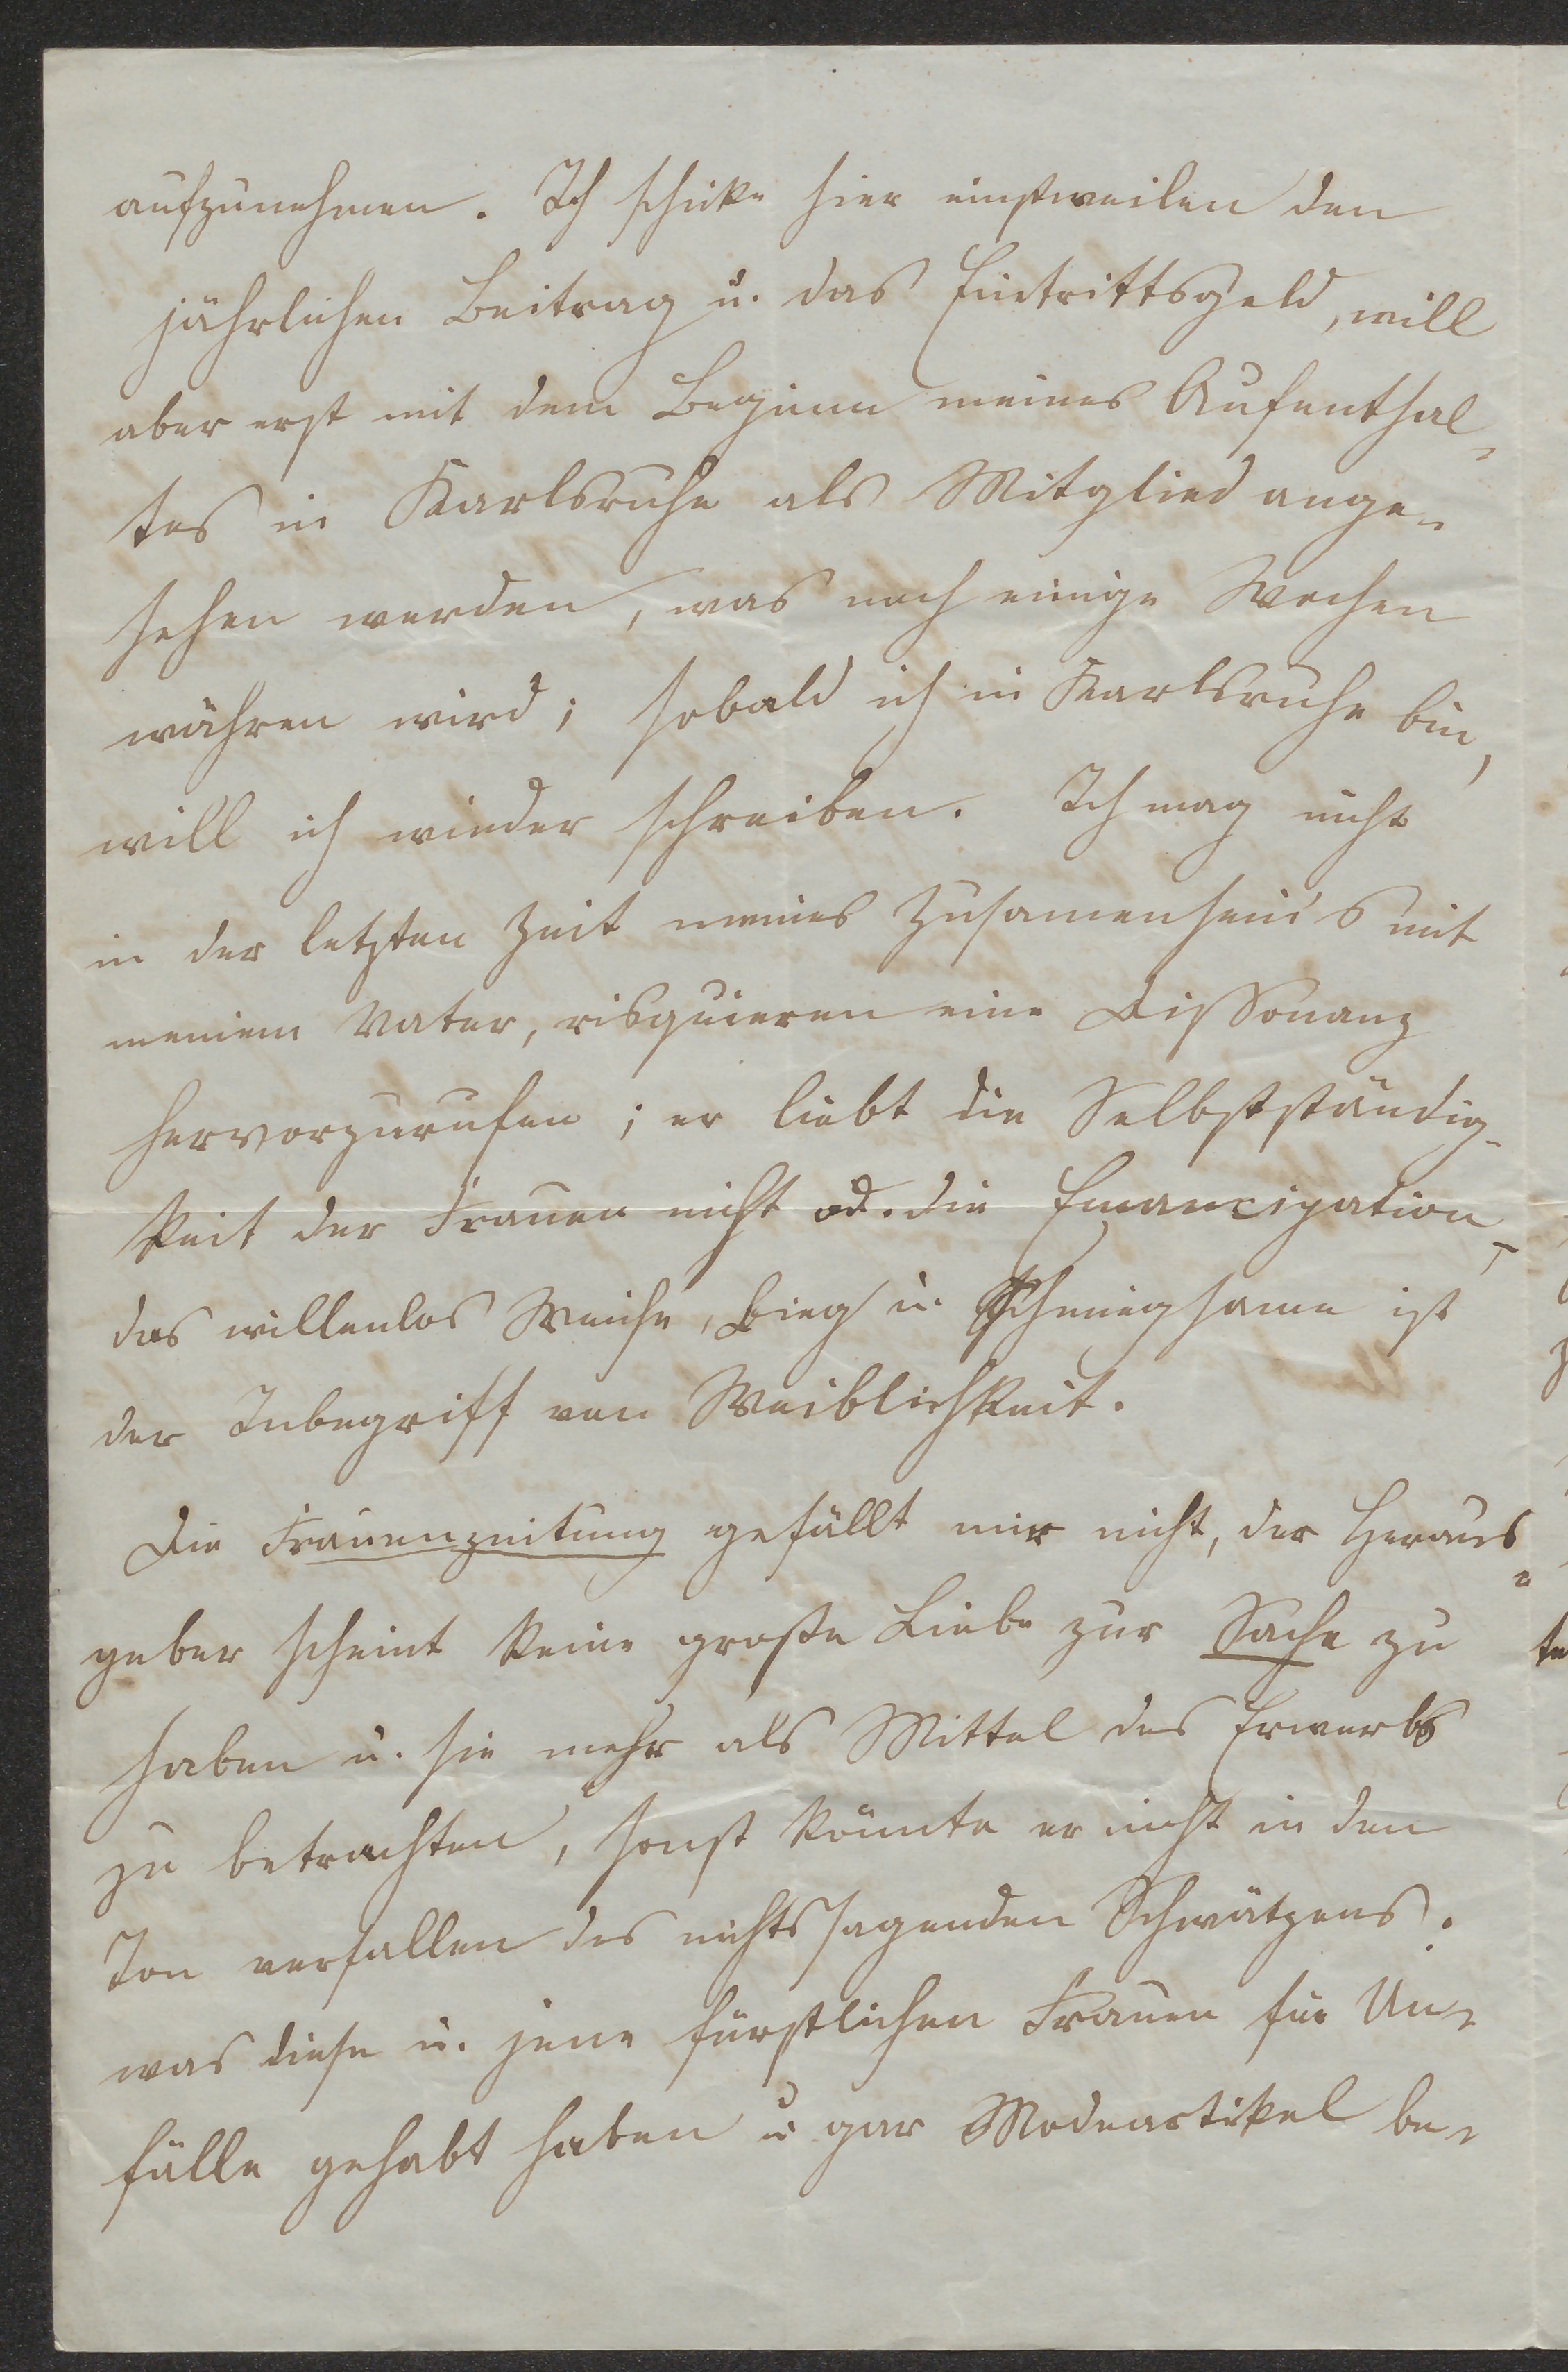 aufzunehmen. Ich schicke hier einstweilen den
jährlichen Beitrag u. das Eintrittsgeld, will
aber erst mit dem Beginn meines Aufenthal-
tes in Karlsruhe als Mitglied ange-
sehen werden, was noch einige Wochen
währen wird; sobald ich in Karlsruhe bin,
will ich wieder schreiben. Ich mag nicht
in der letzten Zeit meines Zusamenseins mit
meinem Vater, risquieren eine Dissonanz
hervorzurufen; er liebt die Selbstständig-
keit der Frauen nicht od. die Emancipation,
das willenlos Weiche, Bieg u. Schmiegsame ist
der Inbegriff von Weiblichkeit.
Die Frauenzeitung gefällt mir nicht, der Heraus-
geber scheint keine große Liebe zur Sache zu
haben u. sie mehr als Mittel des Erwerbs
zu betrachten, sonst könnte er nicht in den
Ton verfallen des nichtssagenden Schwätzens:
was diese u. jene fürstlichen Frauen für Un-
fälle gehabt haben u gar Modeartikel be-